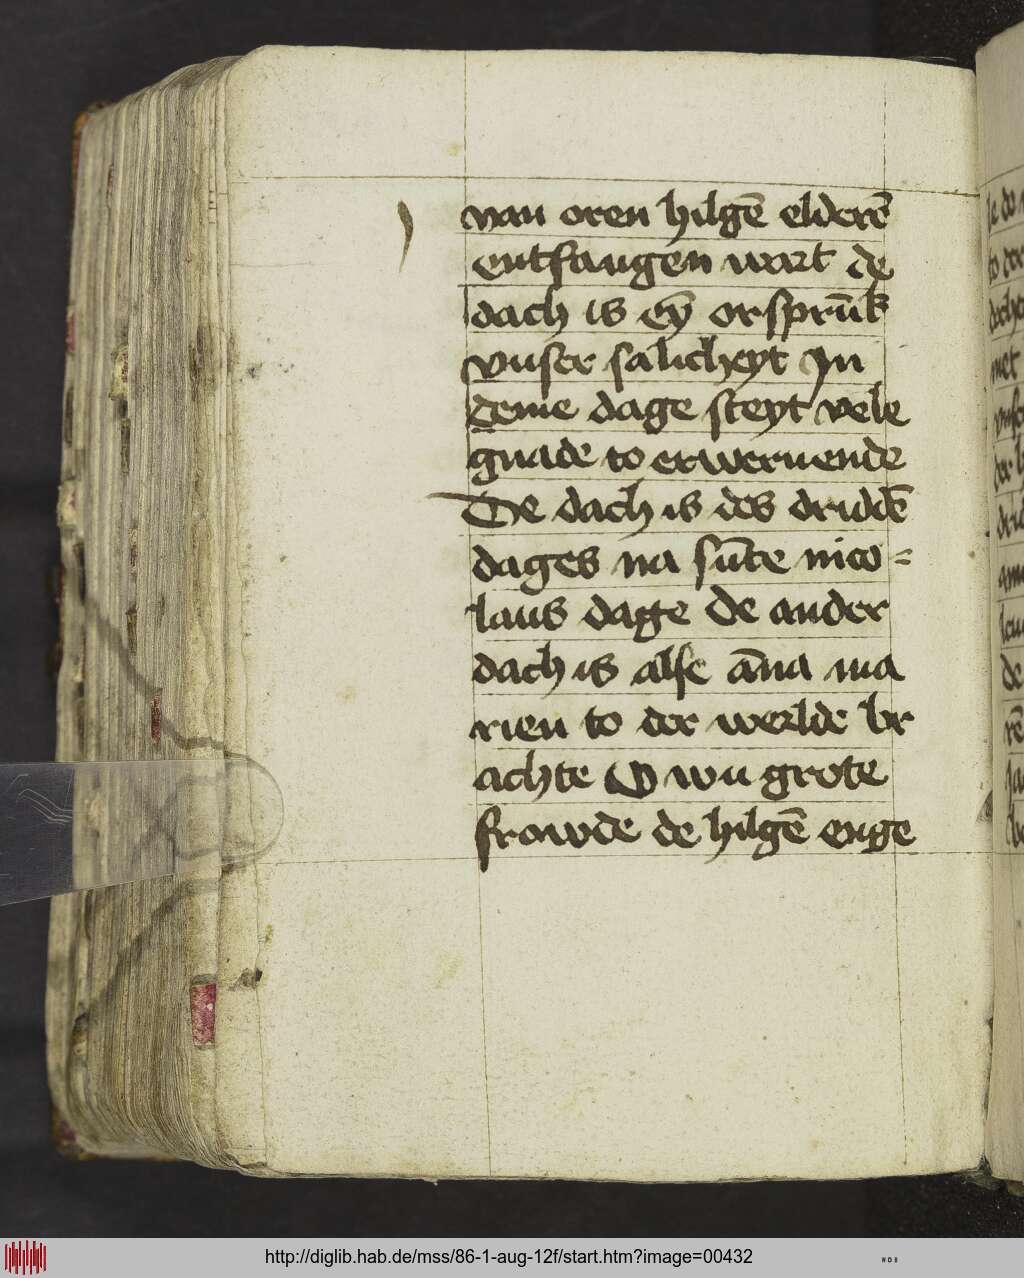 van oren hilgē elderē
entfangen wart de
dach is eȳ orsprūk
vnser salicheyt Jn
deme dage steyt vele
gnade to erweruende
De dach is des druddē
dages na sūte nico-
laus dage De ander
dach is alse āna ma
rien to der werlde br
achte O wu grote
frowde de hilgē enge
http://diglib.hab.de/mss/86-1-aug-12f/start.htm?image=00432